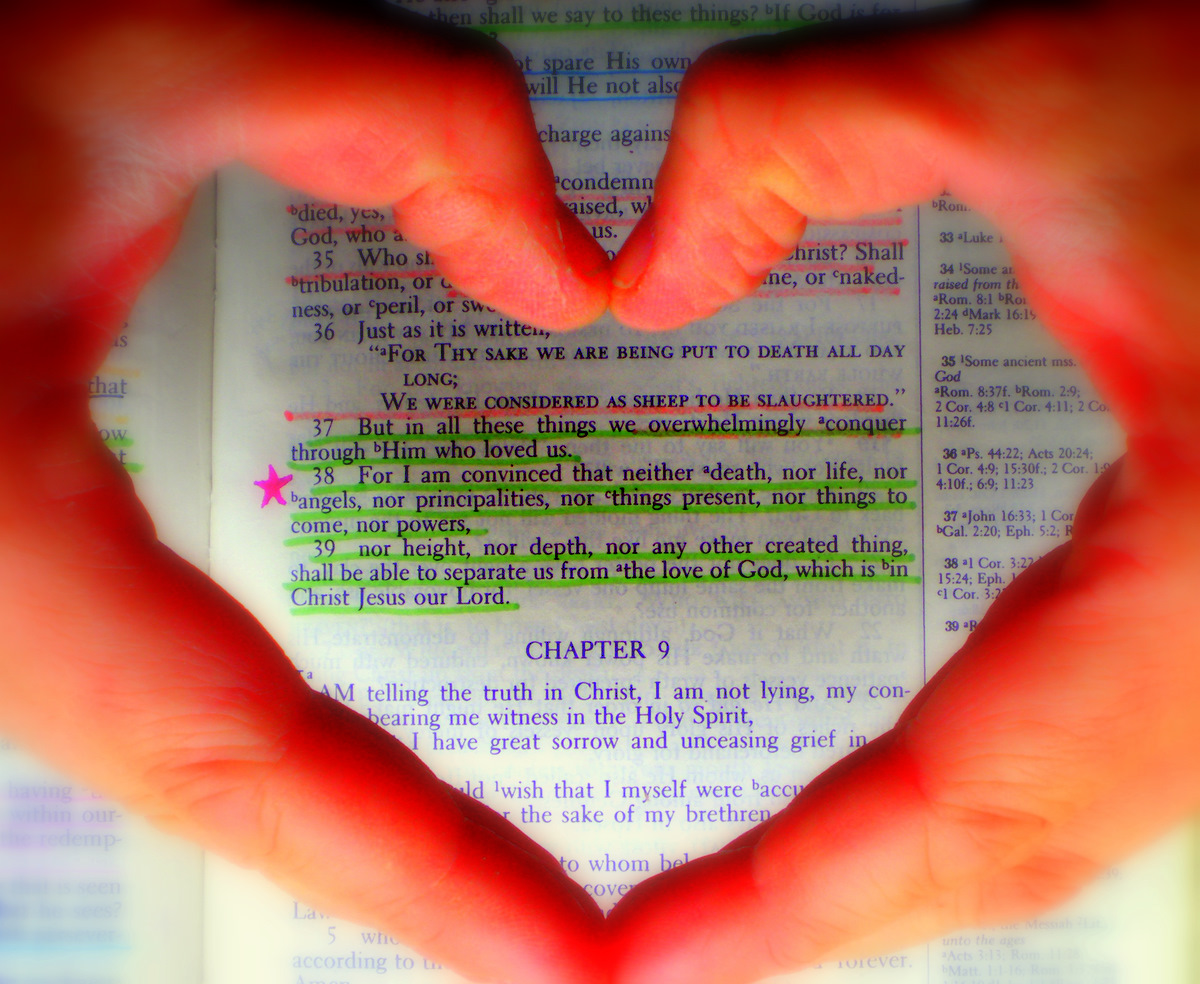 then shall we say to these things? ᵇIf God is for
ot spare His own
will He not also
charge agains
ᵃcondemn
ᵇdied, yes, raised, wh
God, who a us.
35 Who sh Christ? Shall
ᵇtribulation, or ine, or ᶜnaked-
ness, or ᶜperil, or swo
36 Just as it is written,
“ᵃFOR THY SAKE WE ARE BEING PUT TO DEATH ALL DAY
LONG;
WE WERE CONSIDERED AS SHEEP TO BE SLAUGHTERED.”
37 But in all these things we overwhelmingly ᵃconquer
through ᵇHim who loved us.
38 For I am convinced that neither ᵃdeath, nor life, nor
ᵇangels, nor principalities, nor ᶜthings present, nor things to
come, nor powers,
39 nor height, nor depth, nor any other created thing,
shall be able to separate us from ᵃthe love of God, which is ᵇin
Christ Jesus our Lord.
CHAPTER 9
ᵃ
AM telling the truth in Christ, I am not lying, my con-
bearing me witness in the Holy Spirit,
I have great sorrow and unceasing grief in
uld ¹wish that I myself were ᵇaccu
r the sake of my brethren
to whom bel
cover
La
5 who
according to th forever.
Amen
ᵇRom.
33 ᵃLuke
34 ¹Some an
raised from th
ᵃRom. 8:1 ᵇRo
2:24 ᵈMark 16:19
Heb. 7:25
35 ¹Some ancient mss.
God
ᵃRom. 8:37f. ᵇRom. 2:9;
2 Cor. 4:8 ᶜ1 Cor. 4:11; 2 Co
11:26f.
36 ᵃPs. 44:22; Acts 20:24;
1 Cor. 4:9; 15:30f.; 2 Cor. 1:9
4:10f.; 6:9; 11:23
37 ᵃJohn 16:33; 1 Cor
ᵇGal. 2:20; Eph. 5:2; R
38 ᵃ1 Cor. 3:22
15:24; Eph. 1
ᶜ1 Cor. 3:2
39 ᵃR
unto the ages
that
ow
having
within our-
the redemp-
that is seen